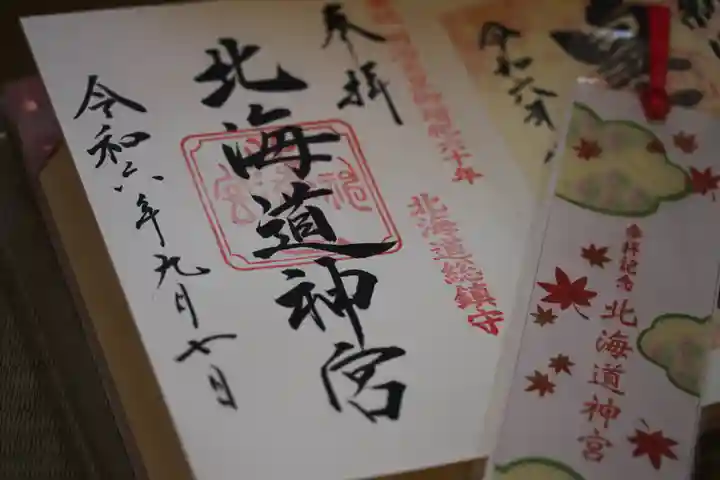 奉拝
北海道神宮
令和六年九月七日
六十年
北海道総鎮守
令和六年
参拝記念
北海道神宮